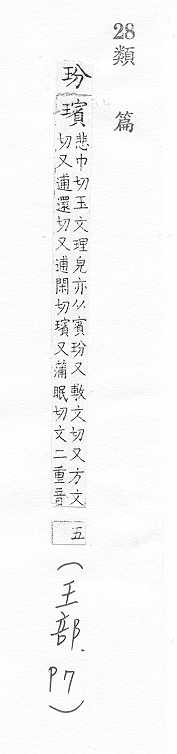 28
類篇
玢
璸
悲巾切玉文理皃亦从賓玢又敷文切又方文
切又逋還切又逋閑切璸又蒲眠切文二重音
五
(王部.
P7)